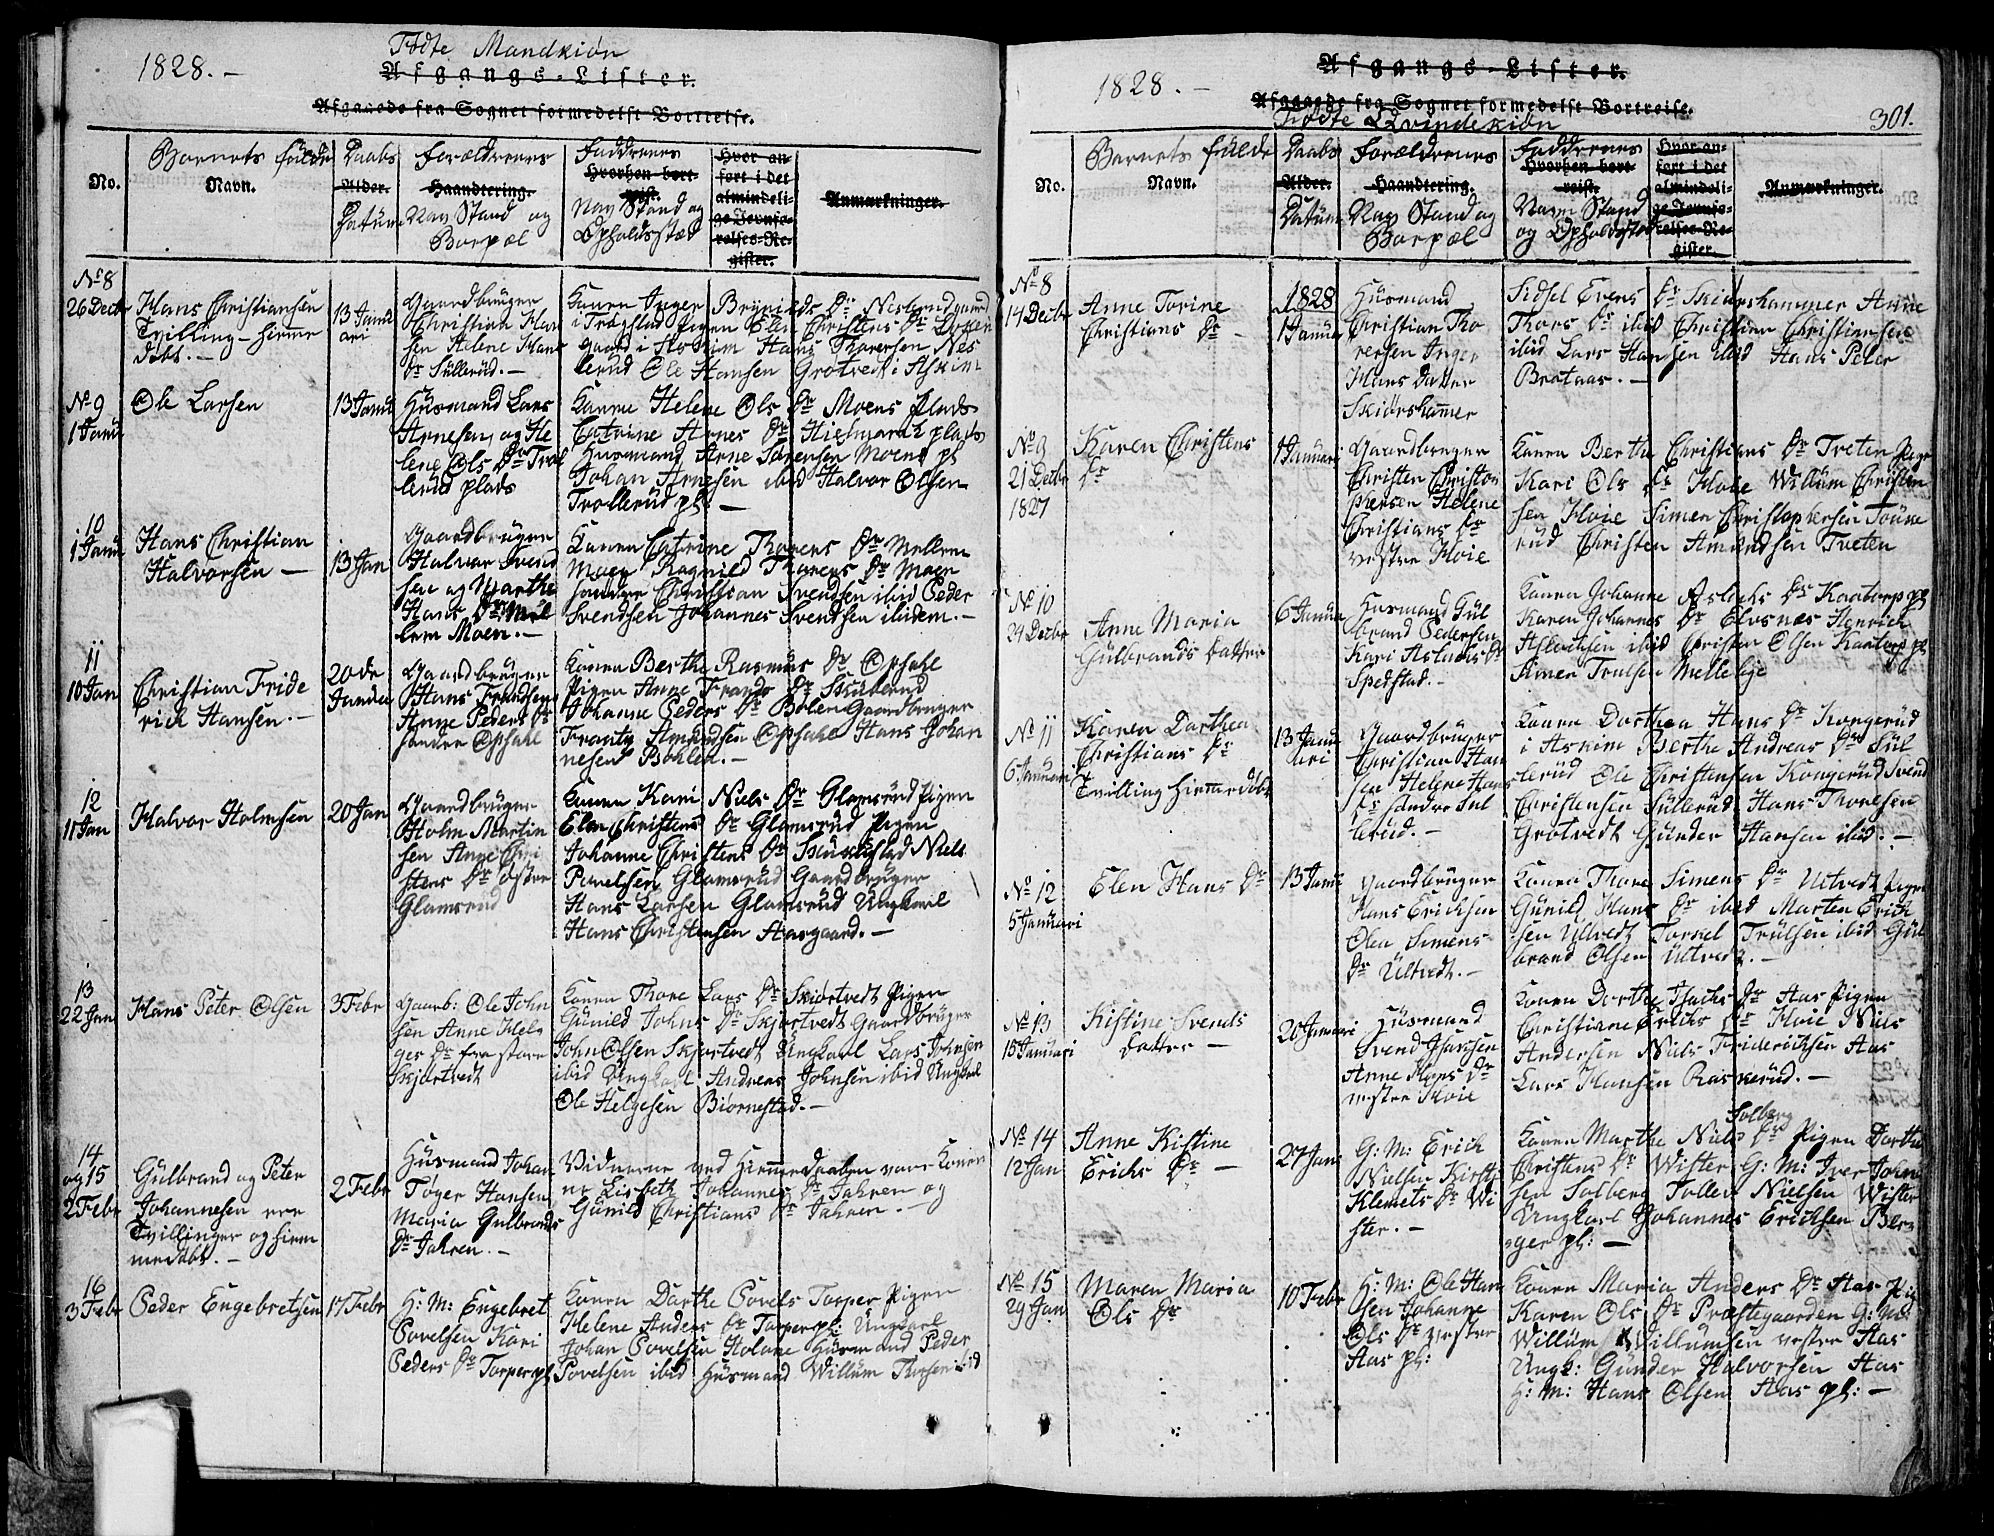 1828.-
Fødte Mandkiøn
Afgangs-Lister.
Afgaaede fra Sognet formedelst Bortreise.
No.
Barnets fulde
Navn.
Daabs
Alder.
Datum
Forældrenes
Haandtering.
Nav Stand og
Bopæl
Faddrenes
Hvorhen bort-
reist.
Nav Stand og
Opholdsstæd
Hvor an-
ført i det
almindeli-
ge Jevnfø-
relses-Re-
gister.
Anmærkninger.
No 8
26 Decbr
Hans Christiansen
Tvilling - hiemme
døbt. -
13 Janu
ari
Gaardbruger
Christian Han
sen Helene Hans
Dr Süllerüd. -
Konen Inger Brynilds Dr Nestengaard
i Trøgstad Pigen Eli Christens Dr
gaard i Askim Hans Thoresen Nes
lerud Ole Hansen Grotvedt i Askim
No 9
1 Janu
Ole Larsen
13 Janu
Husmand Lars
Arnesen og He
lene Ols Dr Trol
lerud plads
Konen Helene Ols Dr Moens Plads
Catrine Arnes Dr plads
Husmand Arne Sørensen Moens pl
Johan Arnesen ibid Halvor Olsen
Trollerud pl: -
10
1 Janu
Hans Christian
Halvorsen -
13 Jan
Gaardbruger
Halvor Svend
sen og Marthe
Hans Dr Mel
lem Moen. -
Konen Catrine Thorens Dr Mellem
Moen Ragnild Thorens Dr Moen
søndre Christian Svendsen ibid Peder
Svendsen Johannes Svendsen ibidem. -
11
10 Jan
Christian Fride
rich Hansen. -
20de
Januar
Gaardbruger
Hans Frandsen
Anne Peders Dr
søndre Opsahl
Konen Berthe Rasmus Dr Opsahl
Pigen Anne Frands Dr Skuberud
Johanne Peders Dr Bolen Gaardbruger
Frantz Amundsen Opsahl Hans Johan
nesen Bohlen. -
12
11 Jan
Halvor Holmsen
20 Jan
Gaardbruger
Holm Martin
sen Anne Chri
stens Dr østre
Glamsrud
Konen Kari Niels Dr Glamsrud Pigen
Elen Christens Dr Glamsrud Pigen
Johanne Christens Dr Niels
Povelsen Glamsrud Gaardbruger
Hans Larsen Glamsrud Ungkarl
Hans Christensen Aasgaard. -
13
22 Jan
Hans Peter Olsen
3 Febr
Gaarb: Ole John
sen Anne Hel
ges Dr fra store
Skjortvedt
Konen Thore Lars Dr Skiørtvedt Pigen
Gunild Johns Dr Skjørtvedt Gaardbruger
John Olsen Skjørtvedt Ungkarl Lars Johnsen
ibid Ungkarl Andreas Johnsen ibid Ungkarl
Ole Helgesen Biørnestad. -
14
og 15
2 Febr
Gulbrand og Peter
Johannesen ere
Tvillinger og hiem
medøbt. -
2 Febr
Husmand Johan
Tøger Hansen
Maria Gulbrands
Dr Jahren. -
Vidnerne ved Hiemmedaaben vare Koner
ne Lisbeth Johannes Dr Jahren og
Gunild Christians Dr Jahren. -
16
3 Febr
Peder Engebretsen
17 Febr
H: M: Engebret
Povelsen Kari
Peders Dr Torper pl
Konen Dorthe Povels Torper Pigen
Helene Anders Dr Torper pl: Ungkarl
Johan Povelsen Husmand Peder
Povelsen ibid Husmand Willum ibid
1828. -
Afgangs-Lister.
Afgaaede fra Sognet formedelst Bortreise.
Fødte Qvindekiøn
301.
No.
Barnets fulde
Navn.
Daabs
Alder.
Datum
Forældrenes
Haandtering.
Nav Stand og
Boepæl
Faddrenes
Hvorhen bort-
reist.
Navn Stand
og Opholdssted
Hvor an-
ført i det
almindeli-
ge Jevnfø-
relses-Re-
gister
Anmærkninger.
No 8
14 Decbr
Anne Torine
Christians Dr -
1828
1 Januar
Husmand
Christian Tho
rersen Inger
Hans Datter
Skiørshammer
Sidsel Evens Dr Skiørshammer Anne
Thors Dr ibid Christian Christiansen
ibid Lars Hansen ibid Hans Peter
Brataas. -
No 9
21 Decbr
1827
Karen Christens
Dr
1 Januari
Gaardbruger
Christen Christo
phersen Helene
Christians Dr
vestre Hoie
Konen Berthe Christians Dr Tveten Pige
Kari Ols Dr Hoie Willum Christen
sen Hoie Simen Christophersen
rud Christen Amundsen Tveten
No 10
24 Decbr
Anne Maria
Gulbrands Datter
6 Januar
Husmand Gul
brand Pedersen
Kari Aslachs Dr
Spedstad. -
Konen Johanne Aslachs Dr Kaatorp pl
Karen Johannes Dr Elvsnæs Henrich
Aslachsen ibid Christen Olsen Kaatorp pl
Simen Trulsen Mellebye
No 11
6 Januari
Karen Dorthea
Christians Dr
Tvilling hiemmedøbt
13 Janu
ari
Gaardbruger
Christian Han
sen Helene Hans
Dr søndre Sul
lerud. -
Konen Dorthea Hans Dr Kongerud
i Askim Berthe Andreas Dr Sül
lerüd Ole Christensen Kongerud Svend
Christensen Süllerüd Hans Thoresen
Grotvedt Gunder Hansen ibid. -
No 12
5 Januari
Elen Hans Dr
13 Janu
Gaardbruger
Hans Erichsen
Olea Simens
Dr Ultvedt. -
Konen Thore Simens Dr Ultvedt Pigen
Gunild Hans Dr ibid Marten Erich
sen Ultvedt Torsel Trulsen ibid Gul
brand Olsen Ultvedt. -
No 13
15 Januari
Kistine Svends
Datter -
20 Januari
Husmand
Svend
Anne Hans Dr
vestre Hoie
Konen Dorthe Isachs Dr Aas Pigen
Christiane Erichs Dr Hoie Niels
Andersen Niels Friderichsen Aas
Lars Hansen Raskerud. -
No 14
12 Jan
Anne Kistine
Erichs Dr -
27 Jan
G: M: Erich
Nielsen Kirsti
Klemets Dr Wi
ster. -
Solberg
Konen Marthe Niels Dr Pigen Dorthe
Christens Dr Wister G: M: Iver John
sen Solberg Tollef Nielsen Wister
Ungkarl Johannes Erichsen Ber
ger pl: -
No 15
29 Jan
Maren Maria
Ols Dr
10 Febr
H: M: Ole Han
sen Johanne
Ols Dr vestre
Aas pl:
Konen Maria Anders Dr Aas Pig
Karen Ols Dr Præstegaarden G: M:
Willum Willumsen vestre Aas
Ungk: Gunder Halvorsen Aas
H: M: Hans Olsen Aas pl: -